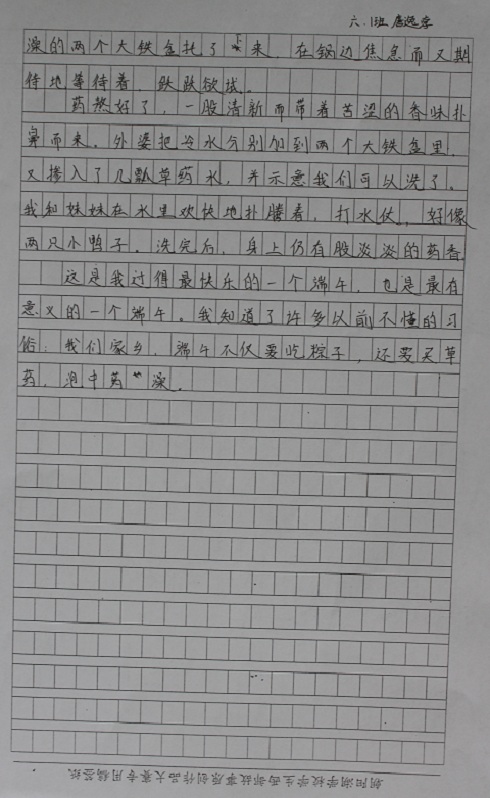 六.1班 唐逸宇
澡的两个大铁盆托了下来，在锅边焦急而又期
待地等待着，跃跃欲试。
药熬好了，一股清新而带着苦涩的香味扑
鼻而来。外婆把冷水分别加到两个大铁盆里，
又掺入了几瓢草药水，并示意我们可以洗了。
我和妹妹在水里欢快地扑腾着，打水仗，好像
两只小鸭子。洗完后，身上仍有股淡淡的药香。
这是我过得最快乐的一个端午，也是最有
意义的一个端午。我知道了许多以前不懂的习
俗：我们家乡，端午不仅要吃粽子，还要买草
药，泡中药澡。
朝阳湖学校学生西部故事原创作品大赛专用稿签纸